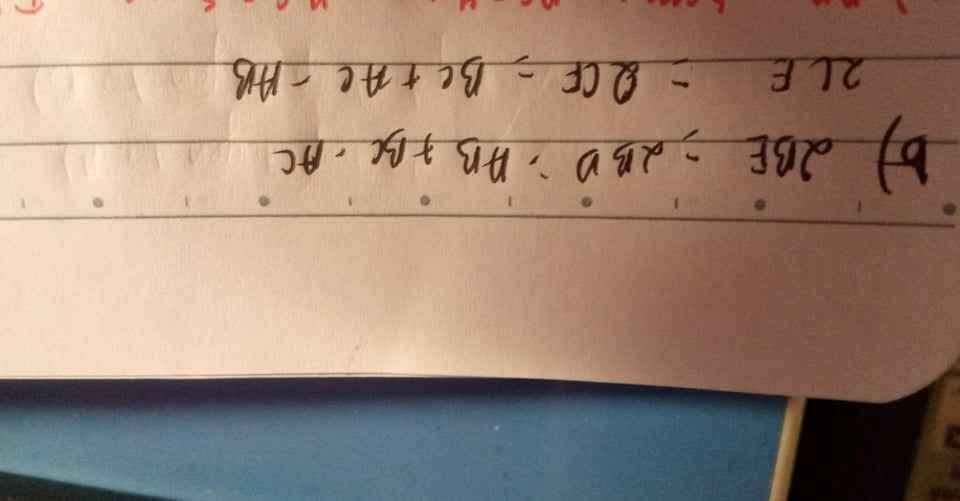 b) 2BE = 2BD = AB + BC - AC
2CE = 2CF = BC + AC - AB